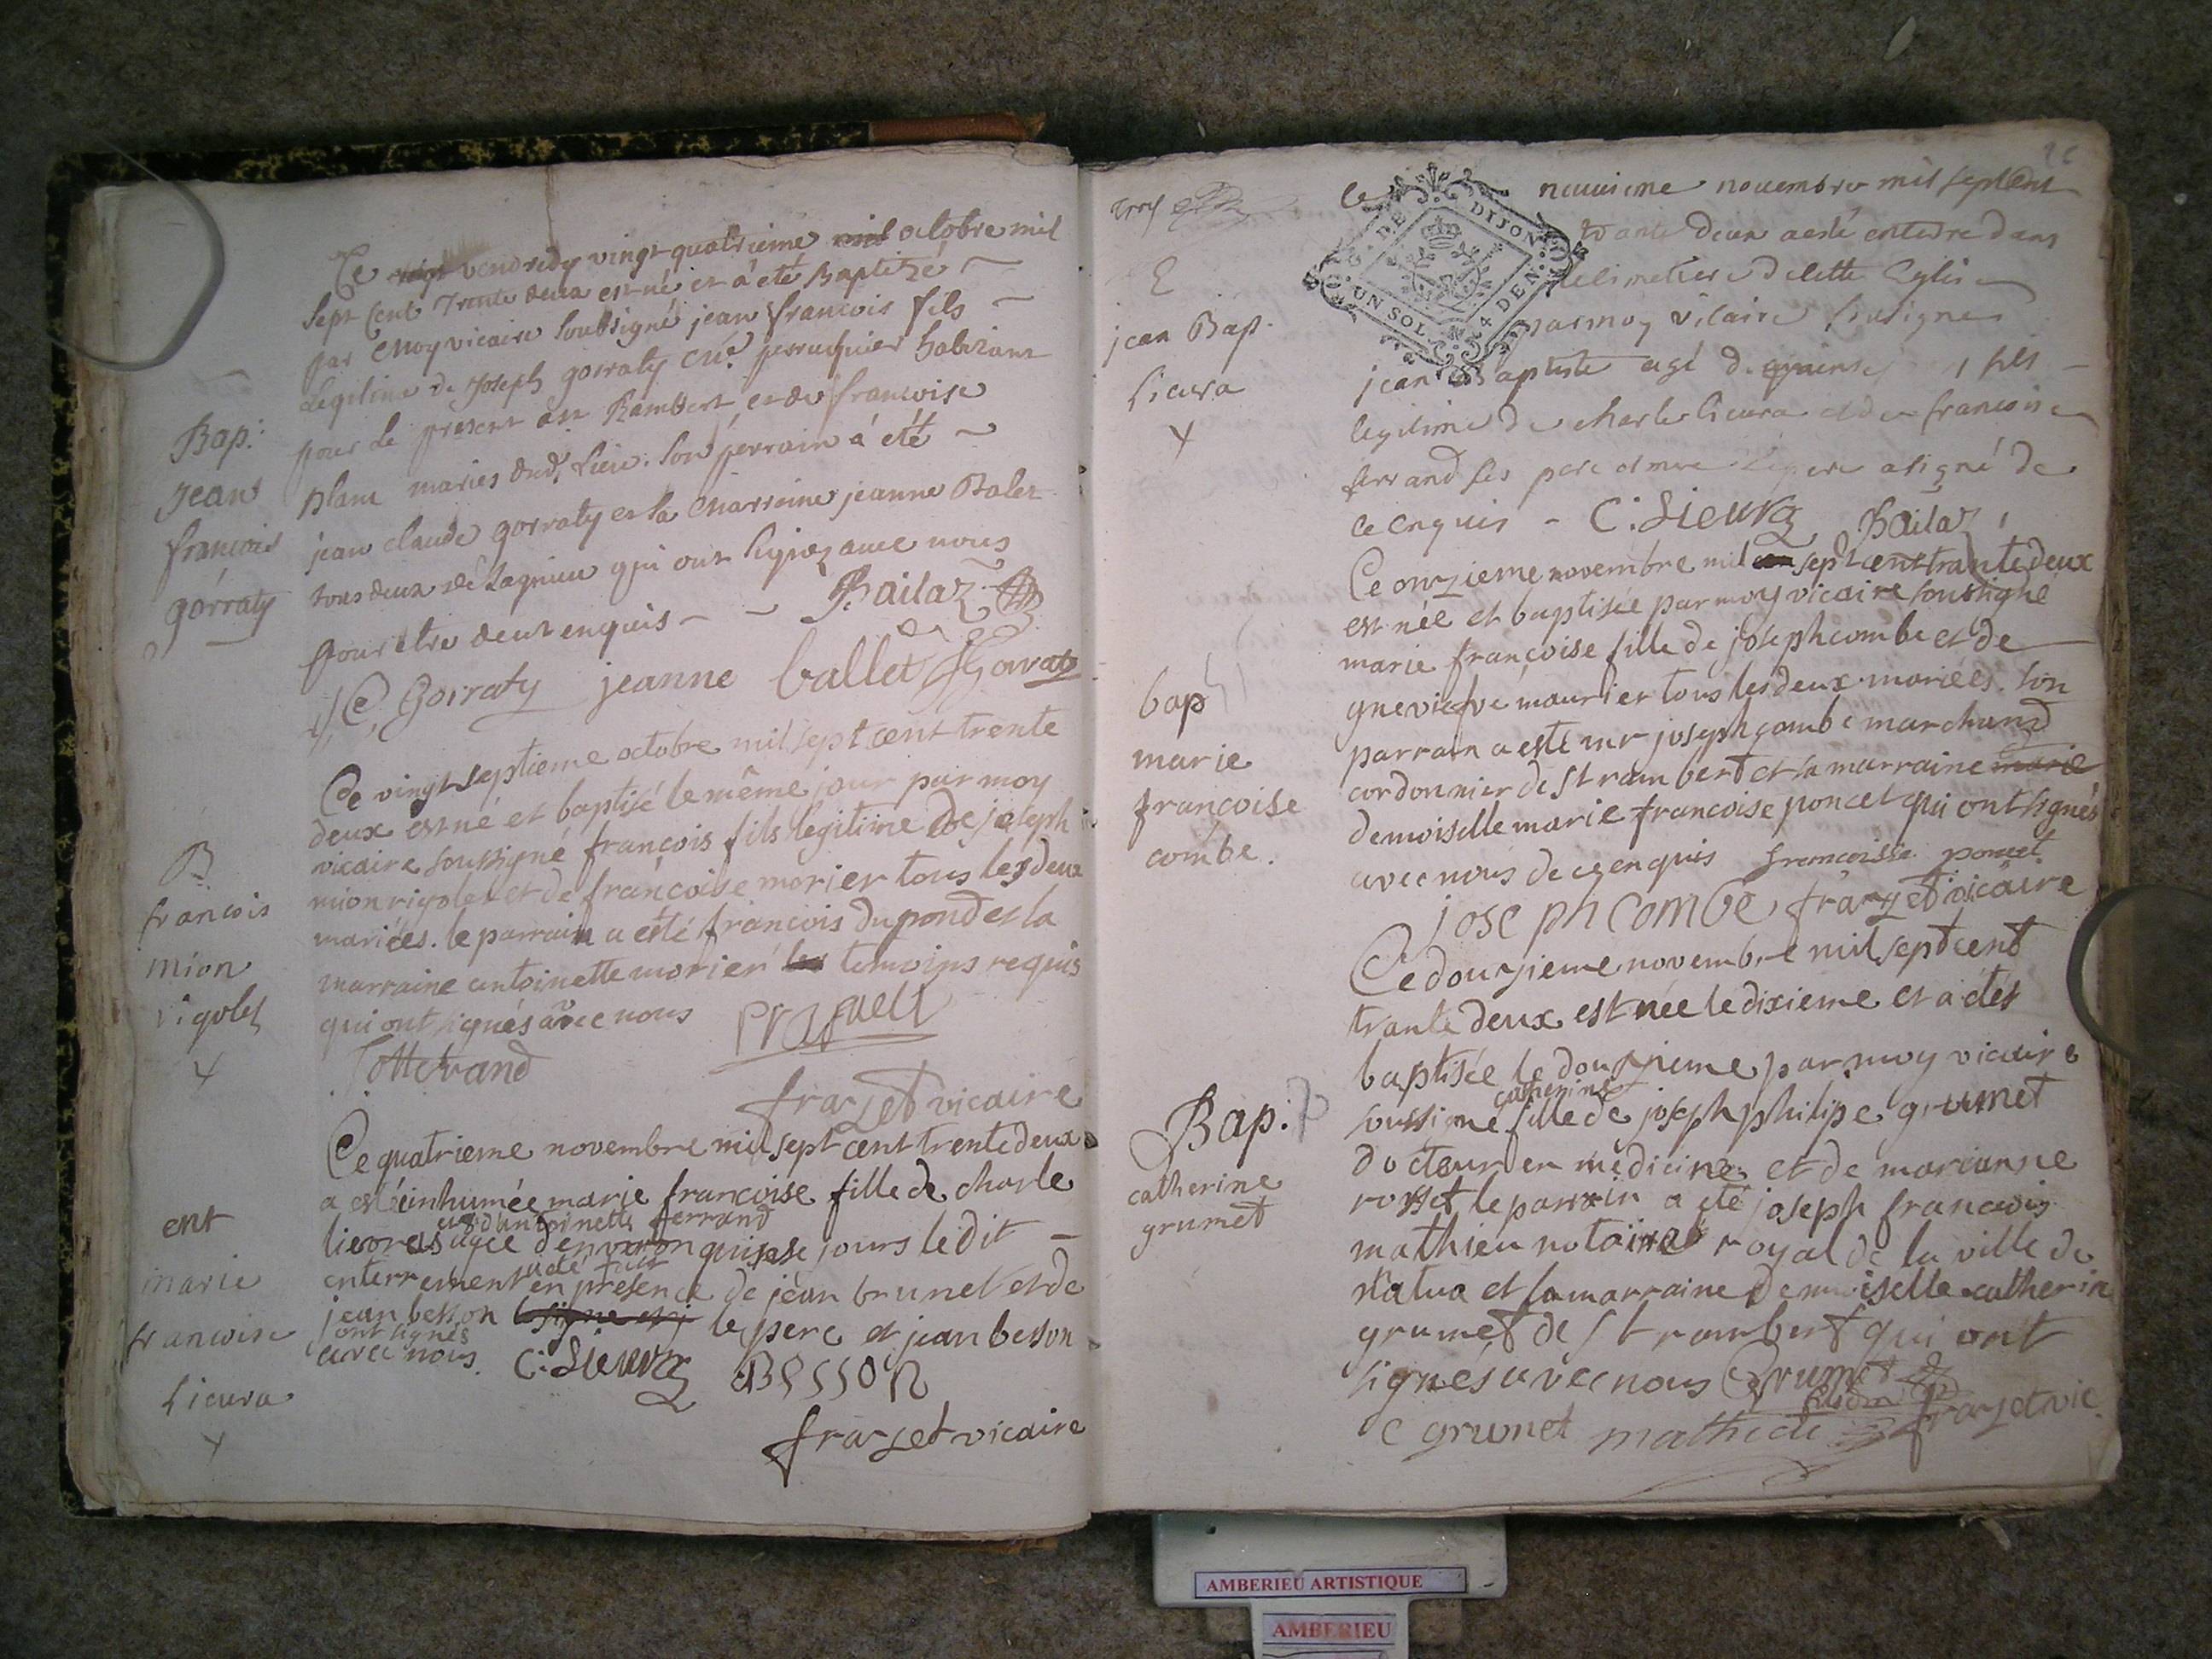 Bap:
jean
francois
gorraty
Ce vendredy vingt quatrieme octobre mil
sept cent trente deux est né et à été Baptizé
par Moy vicaire soubsigné jean francois fils
legitime de Joseph gorraty perruquier habitant
pour le present a st Rambert et de francoise
plane mariés dud. lieu. son parrain à été
jean claude gorraty et la Marreine jeanne Balet
tous deux de Lagnieu qui ont signez avec nous
pour etre de ce enquis Bailaz
J C Gorraty jeanne ballet J Gorraty
B
francois
mion
rigolet
Ce vingt septieme octobre mil sept cent trente
deux est né et baptisé le même jour par moy
vicaire soussigné françois fils legitime de joseph
mion rigolet et de françoise morier tous les deux
mariées. le parrain a esté francois dupond et la
marraine antoinette morier les temoins requis
qui ont signés avec nous
Cottetrand
frazet vicaire
ent
marie
francoise
Lieura
Ce quatrieme novembre mil sept cent trente deux
a esté inhumée marie francoise fille de charle
et d'antoinette ferrand
lieuras agée d'environ quinse jours le dit
a été fait
enterrement en presence de jean brunet et de
jean besson le pere et jean besson
ont signés
avec nous. C: Lieura BESSON
frazet vicaire
E
jean Bap.
Lieura
Ce neuvieme novembre mil sept cent
trante deux a esté enterre dans
le cimetiere de cette Eglise
par moy vicaire sousigne
jean Baptiste agé de quinse , fils
legitime de charle lieura et de francoise
ferrand ses pere et mere le pere a signé de
ce enquis - C: Lieura Bailaz
DE DIJON
UN SOL 4 DEN.
bap
marie
françoise
combe.
Ce onzieme novembre mil sept cent trante deux
est née et baptisée par moy vicaire soussigné
marie françoise fille de joseph combe et de
gneviefve maurier tous les deux mariées. son
parrain a esté mr joseph combe marchand
cordonnier de st rambert et sa marraine marie
demoiselle marie francoise poncet qui ont signés
avec nous de ce enquis francoisse poncet
joseph combe frazet vicaire
Bap:
catherine
grumet
Ce douzieme novembre mil sept cent
trante deux est née le dixieme et a étés
baptisée le douzieme par moy vicaire
catherine
soussigné fille de joseph philipe grumet
docteur en médicine et de marianne
rosset le parrain a été joseph francois
mathieu notaire royal de la ville de
nantua et la marraine demoiselle catherin
grumet de st rambert qui ont
signés avec nous Grumet
c grumet frazet vic
AMBERIEU ARTISTIQUE
AMBERIEU